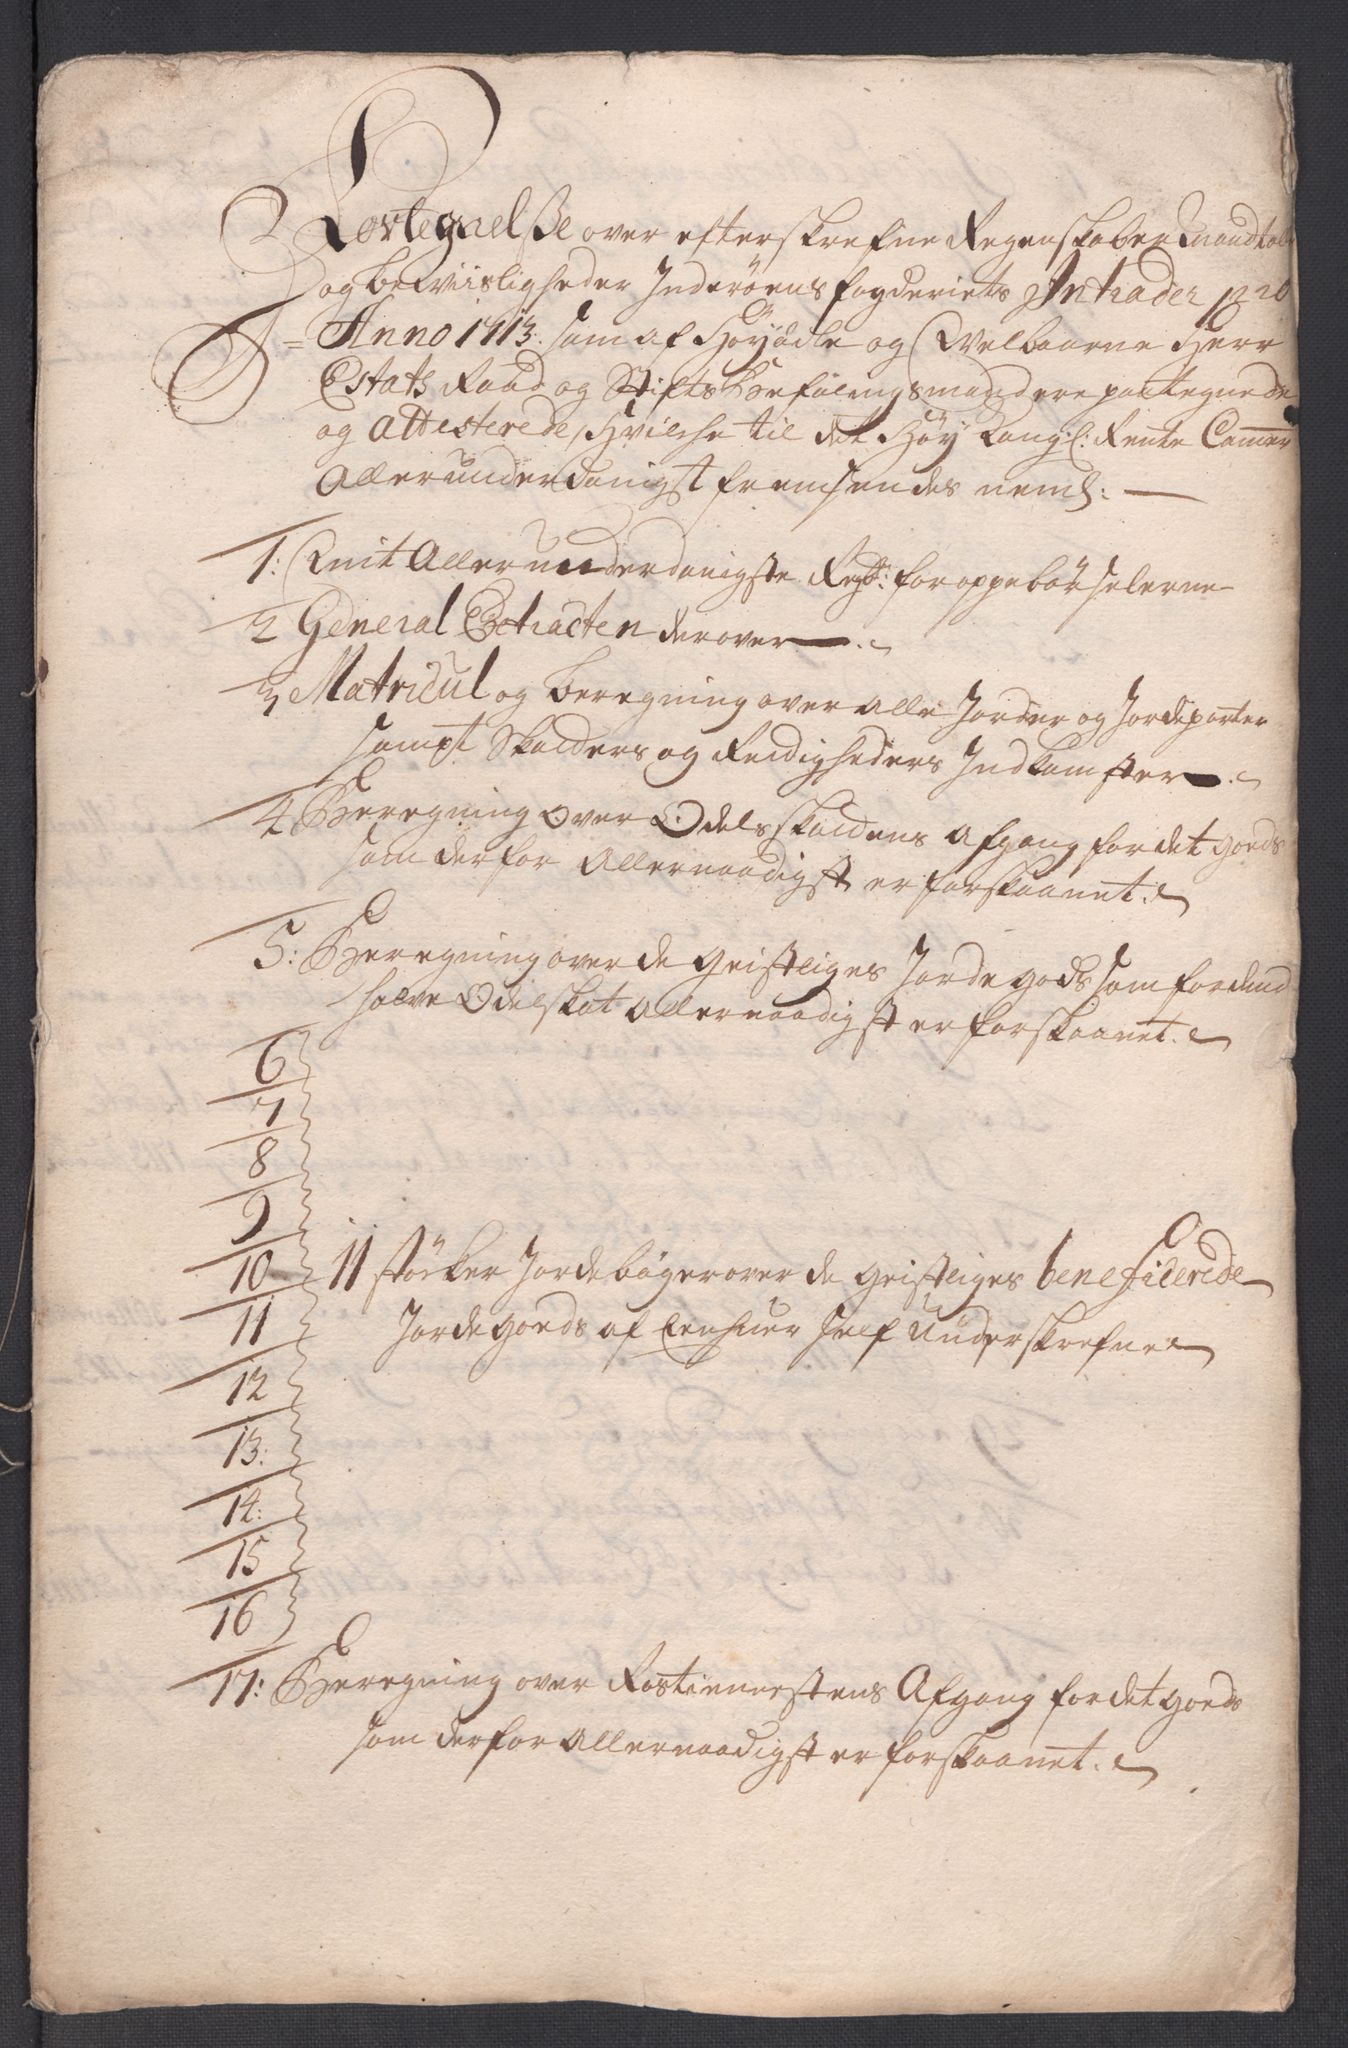 Fortegnelße over efterskrefne Regenskaber Mandtaler
og beviisligheder Inderöens fogderiets Intrader pro
Anno 1713. som af Höyædle og Velbaarne Herr
Estats Raad og Stifts Befalingsmand ere paategnede
og attesterede, Hvilche til det Höy Kongl: Rente Camer
Allerunderdanigst fremsendes neml:
1: Mit Allerunderdanigste Regsk: for oppebörselerne
2 General Extracten derover
3 Matricul og beregning over alle Jorder og Jordeparter
sampt Skatters og Rettigheders Indkomster
4 Beregning over Odelsskattens afgang for det goeds
som derfor Allernaadigst er forskaanet.
5: Beregning over de Geistliges Jordegods som for dend
halve Odelskat Allernaadigst er forskaanet.
6
7
8
9
10 11 støcker Jordebøger over de Geistliges beneficerede
11 Jordegoeds af Enhver self Underskrefne
12
13:
14:
15
16
17: Beregning over Rostienestens Afgang for det goeds
som derfor Allernaadigst er forskaanet.